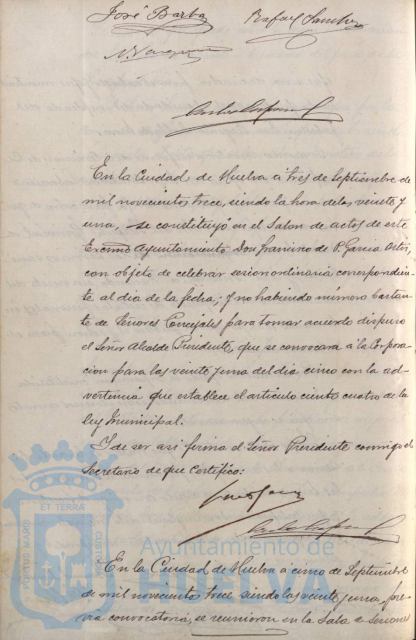 José Barba Rafael Sanchez
En la Ciudad de Huelva á tres de Septiembre de
mil novecientos trece, siendo la hora de las veinte y
una, se constituyó en el Salon de actos de este
Excmo Ayuntamiento Don Francisco de P. García Ortiz,
con objeto de celebrar sesion ordinaria correspondien-
te al dia de la fecha; y no habiendo número bastan-
te de Señores Concejales para tomar acuerdo dispuso
el Señor Alcalde Presidente, que se convocara á la Corpora-
cion para las veinte y una del dia cinco con la ad-
vertencia que establece el articulo ciento cuatro de la
ley Municipal.
Y de ser asi firma el Señor Presidente conmigo el
Secretario de que certifico:
ET TERRÆ
PORTUS MARIS
CUSTODIA
Ayuntamiento de
HUELVA
En la Ciudad de Huelva á cinco de Septiembre
de mil novecientos trece siendo las veinte y una, pre-
via convocatoria, se reunieron en la Sala de Sesiones